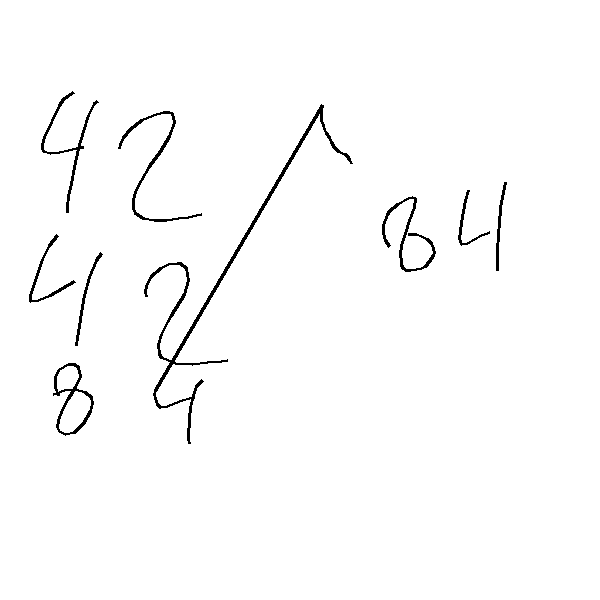 42
42
84
84